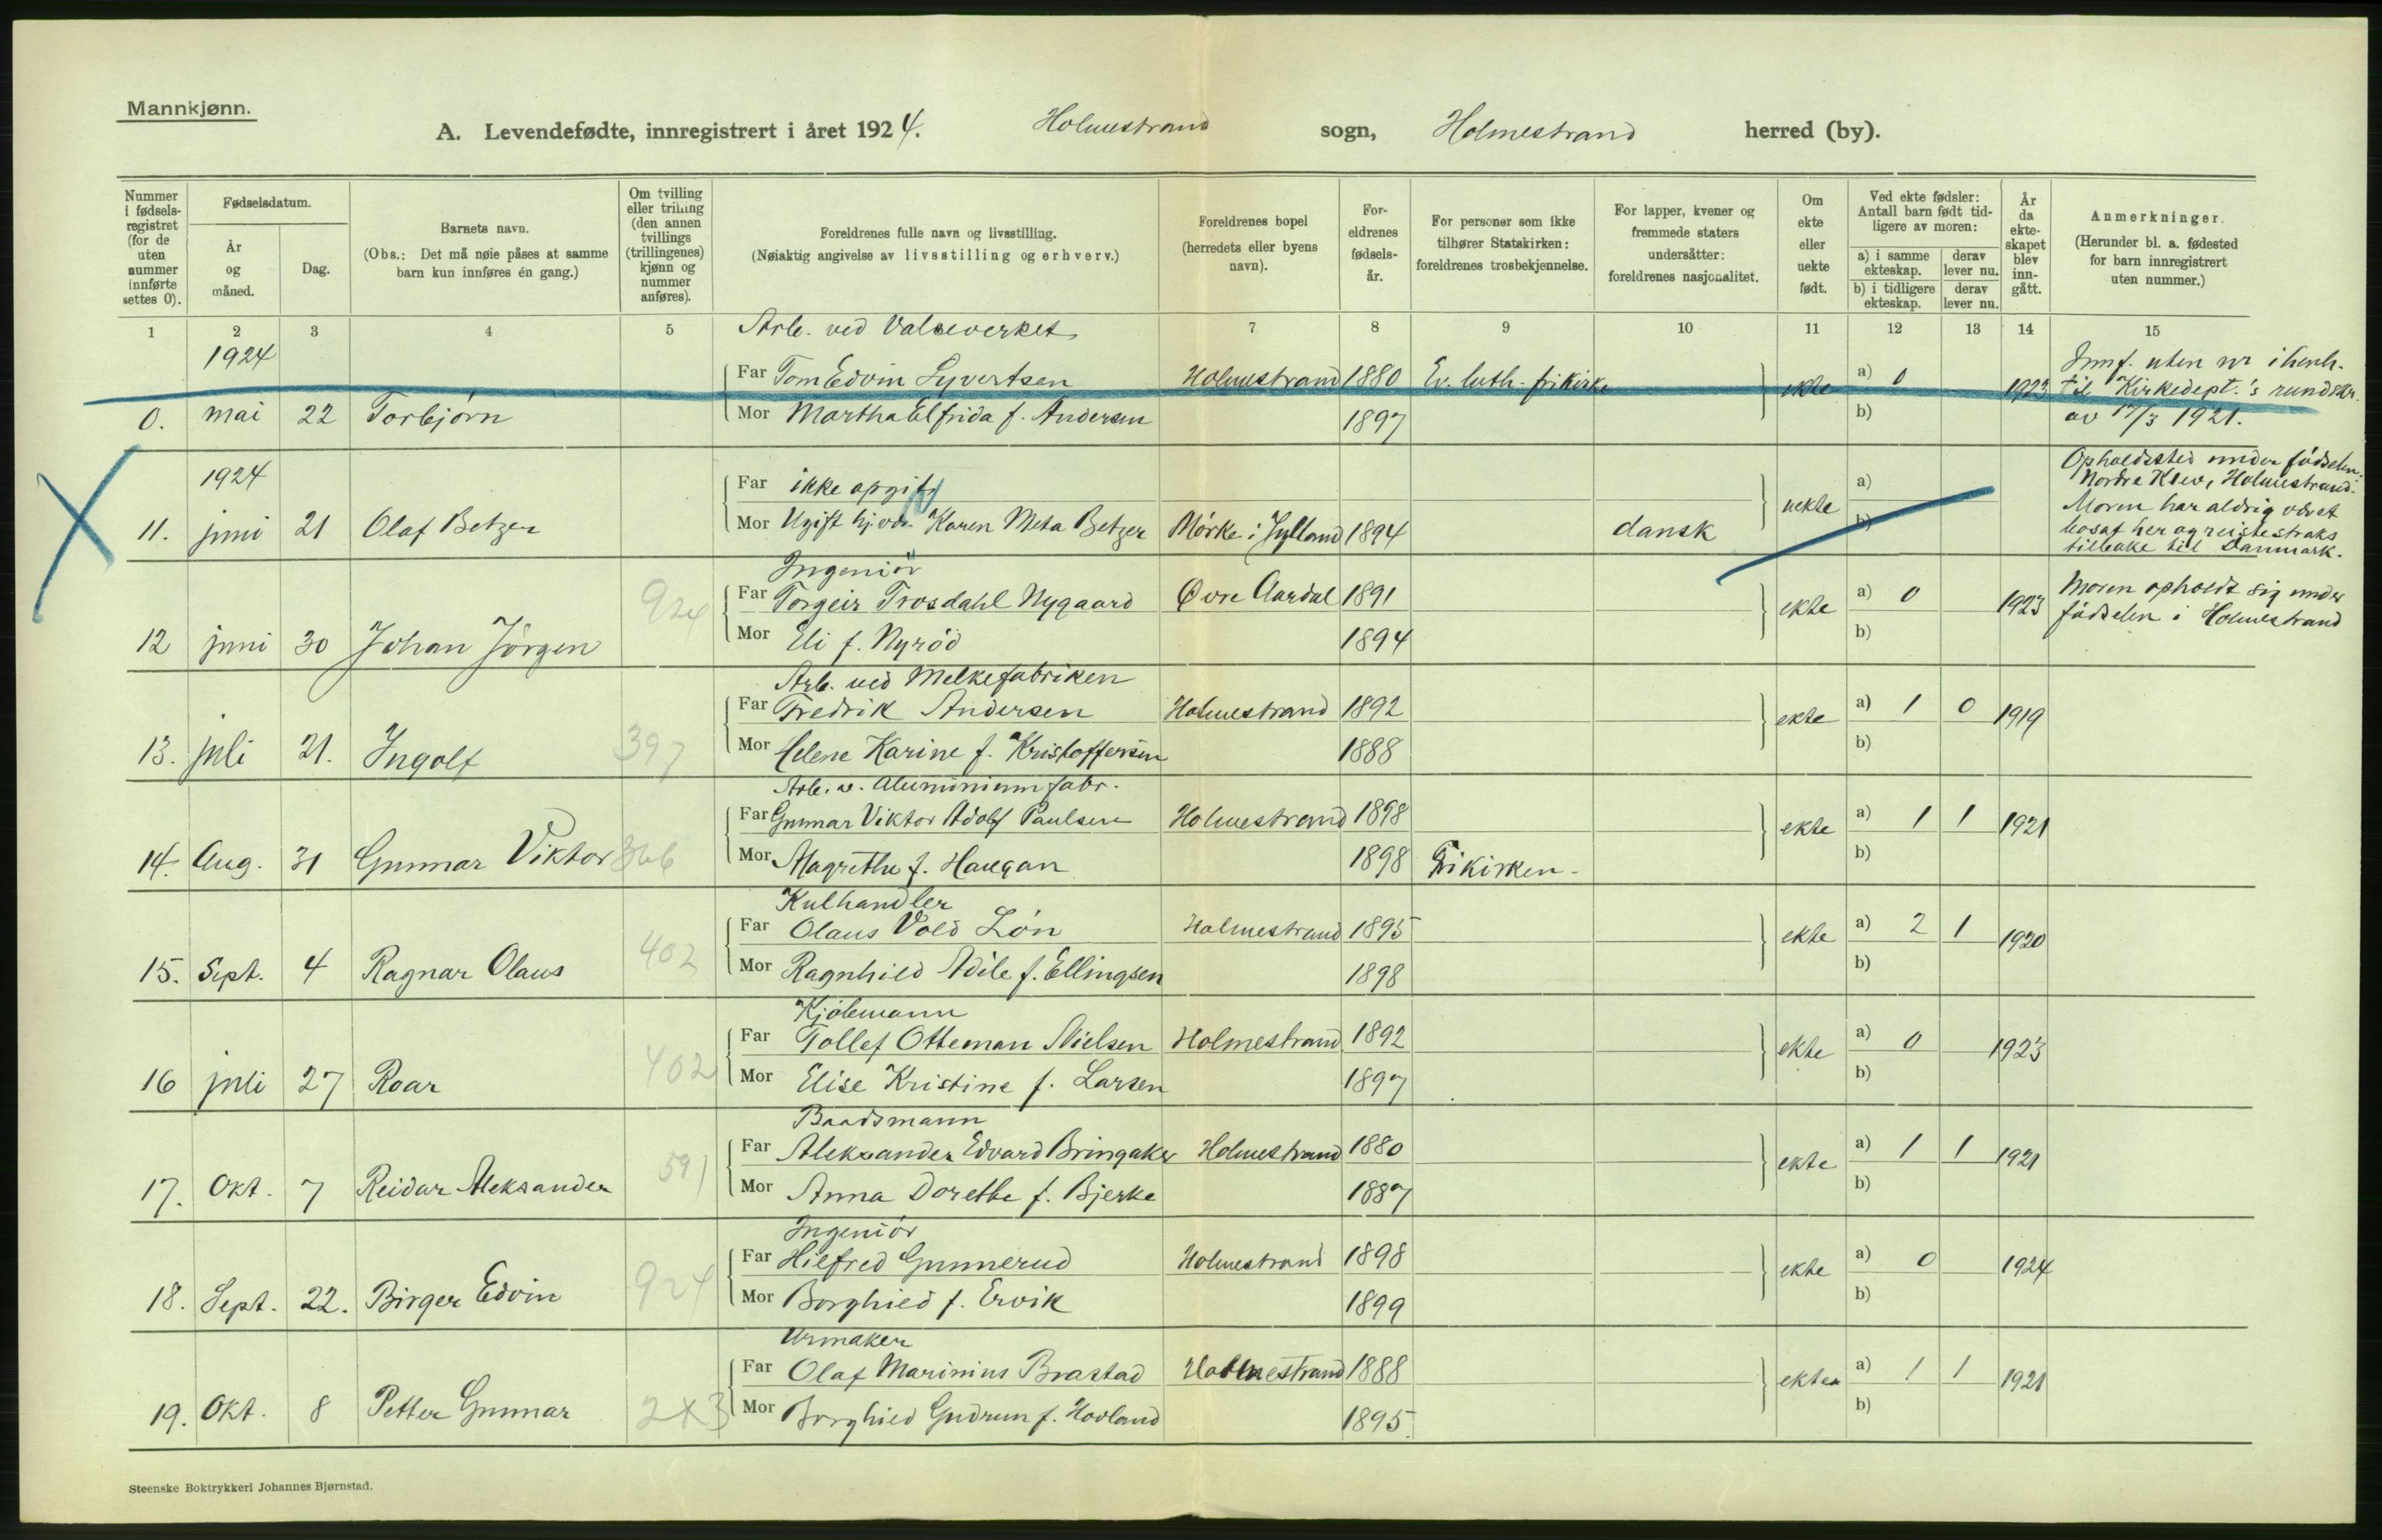 Mannkjønn.
A. Levendefødte, innregistrert i året 1924. Holmestrand sogn, Holmestrand herred (by).
Nummer i fødselsregistret (for de uten nummer innførte settes 0).
Fødselsdatum.
År og måned.
Dag.
Barnets navn.
(Obs.: Det må nøie påses at samme barn kun innføres én gang.)
Om tvilling eller trilling (den annen tvillings (trillingenes) kjønn og nummer anføres).
Foreldrenes fulle navn og livsstilling.
(Nøiaktig angivelse av livsstilling og erhverv.)
Foreldrenes bopel (herredets eller byens navn).
Foreldrenes fødselsår.
For personer som ikke tilhører Statskirken: foreldrenes trosbekjennelse.
For lapper, kvener og fremmede staters undersåtter: foreldrenes nasjonalitet.
Om ekte eller uekte født.
Ved ekte fødsler: Antall barn født tidligere av moren:
a) i samme ekteskap. derav lever nu.
b) i tidligere ekteskap. derav lever nu.
År da ekteskapet blev inngått.
Anmerkninger.
(Herunder bl. a. fødested for barn innregistrert uten nummer.)
1 2 3 4 5 7 8 9 10 11 12 13 14 15
Arb. ved Valseverket
1924
Far Tom Edvin Syvertsen Holmestrand 1880 Ev. luth. frikirke ekte a) 0 1923
0. mai 22 Torbjørn Mor Martha Elfrida f. Andersen 1897 b)
Innf. uten nr i henh.
til Kirkedept.'s rundskr.
av 17/3 1921.
1924
Far ikke opgit
11. juni 21 Olaf Betzer Mor Ugift hjvd. Karen Meta Betzer Mørke i Jylland 1894 dansk uekte a) b)
Opholdssted under fødselen
Nordre Klev, Holmestrand.
Moren har aldrig været
bosat her og reiste straks
tilbake til Danmark.
Ingeniør
924
Far Torgeir Trosdahl Nygaard Øvre Aardal 1891 ekte a) 0 1923
12 juni 30 Johan Jørgen Mor Eli f. Nyrød 1894 b)
Moren opholdt sig under
fødselen i Holmestrand
Arb. ved Melkefabriken
Far Fredrik Andersen Holmestrand 1892 ekte a) 1 0 1919
13. juli 21. Ingolf 397 Mor Helene Karine f. Kristoffersen 1888 b)
Arb. v. Aluminiumfabr.
Far Gunnar Viktor Adolf Paulsen Holmestrand 1898 ekte a) 1 1 1921
14. Aug. 31 Gunnar Viktor 366 Mor Magrethe f. Haugan 1898 Frikirken b)
Kulhandler
Far Olaus Vold Løn Holmestrand 1895 ekte a) 2 1 1920
15. Sept. 4 Ragnar Olaus 402 Mor Ragnhild Adèle f. Ellingsen 1898 b)
Kjølemann
Far Tollef Otteman Nielsen Holmestrand 1892 ekte a) 0 1923
16 juli 27 Roar 402 Mor Elise Kristine f. Larsen 1897 b)
Baadsmann
Far Aleksander Edvard Bringaker Holmestrand 1880 ekte a) 1 1 1921
17. Okt. 7 Reidar Aleksander 591 Mor Anna Dorethe f. Bjerke 1887 b)
Ingeniør
Far Hilfred Gunnerud Holmestrand 1898 ekte a) 0 1924
18. Sept. 22. Birger Edvin 924 Mor Borghild f. Ervik 1899 b)
Urmaker
Far Olaf Marinius Brastad Holmestrand 1888 ekte a) 1 1 1921
19. Okt. 8 Petter Gunnar 2x3 Mor Borghild Gudrun f. Hovland 1895. b)
Steenske Boktrykkeri Johannes Bjørnstad.